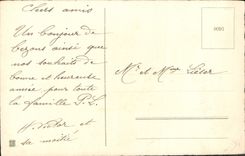 Chers amis
Un bonjour de
Bezons ainsi que
nos souhaits de
bonne et heureuse
année pour toute
la famille P. L.
et sa moitié
Mr et Mme